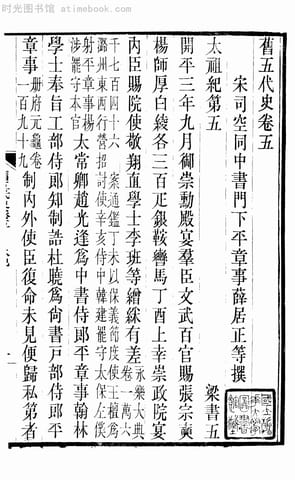 时光图书馆 - atimebook.com
舊五代史卷五
宋司空同中書門下平章事薛居正等撰
太祖紀第五 梁書五
開平三年九月御崇勳殿宴羣臣文武百官賜張宗奭
楊師厚白綾各三百匹銀鞍轡馬丁酉上幸崇政院宴
內臣賜院使敬翔直學士李班等繒綵有差永樂大典卷一萬六
千七百四十六 案通鑑丁未以保義節度使王檀爲
潞州東西行營招討使辛亥侍中韓建罷守太保左僕
射平章事楊涉罷守本官太常卿趙光逢爲中書侍郎平章事翰林
學士奉旨工部侍郎知制誥杜曉爲尚書戶部侍郎平
章事冊府元龜卷一百九十九制內外使臣復命未見便歸私第者